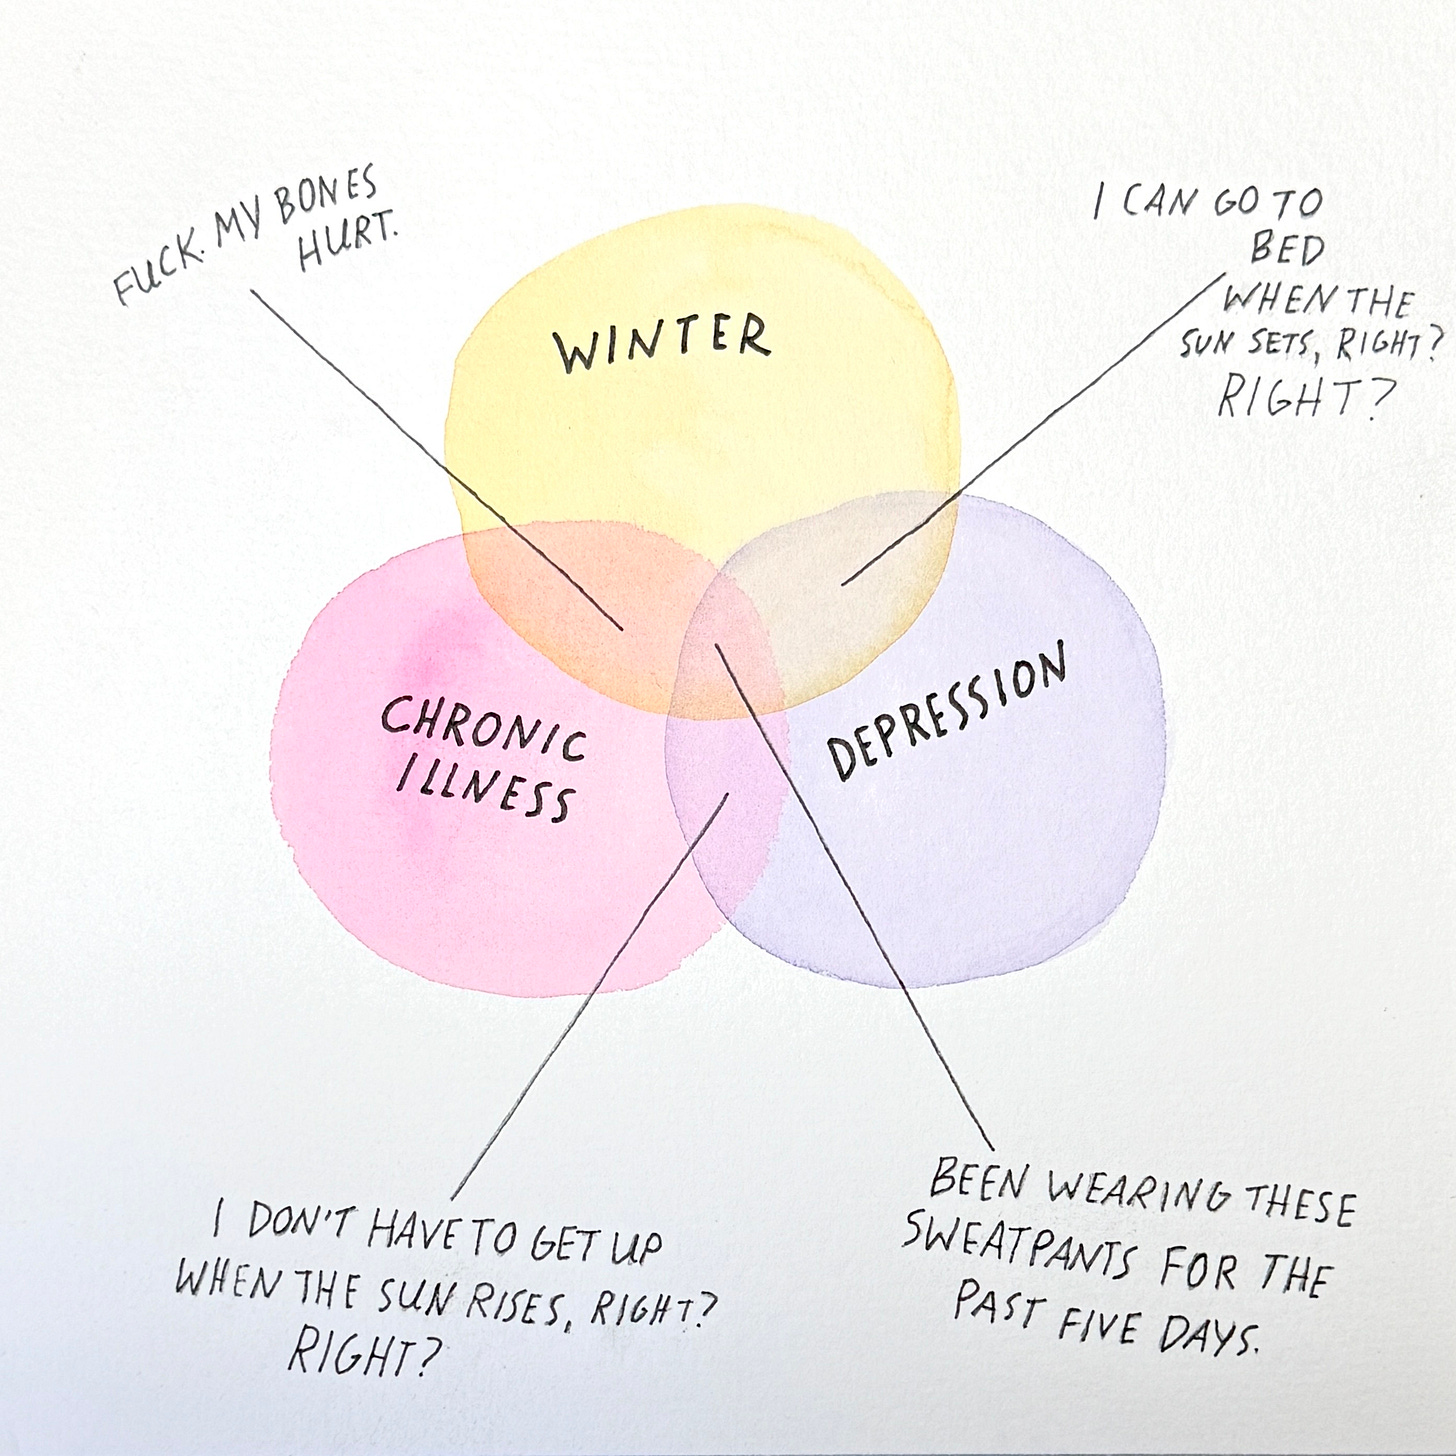 FUCK. MY BONES
HURT.
I CAN GO TO
BED
WHEN THE
SUN SETS, RIGHT?
RIGHT?
WINTER
CHRONIC
ILLNESS
DEPRESSION
I DON'T HAVE TO GET UP
WHEN THE SUN RISES, RIGHT?
RIGHT?
BEEN WEARING THESE
SWEATPANTS FOR THE
PAST FIVE DAYS.